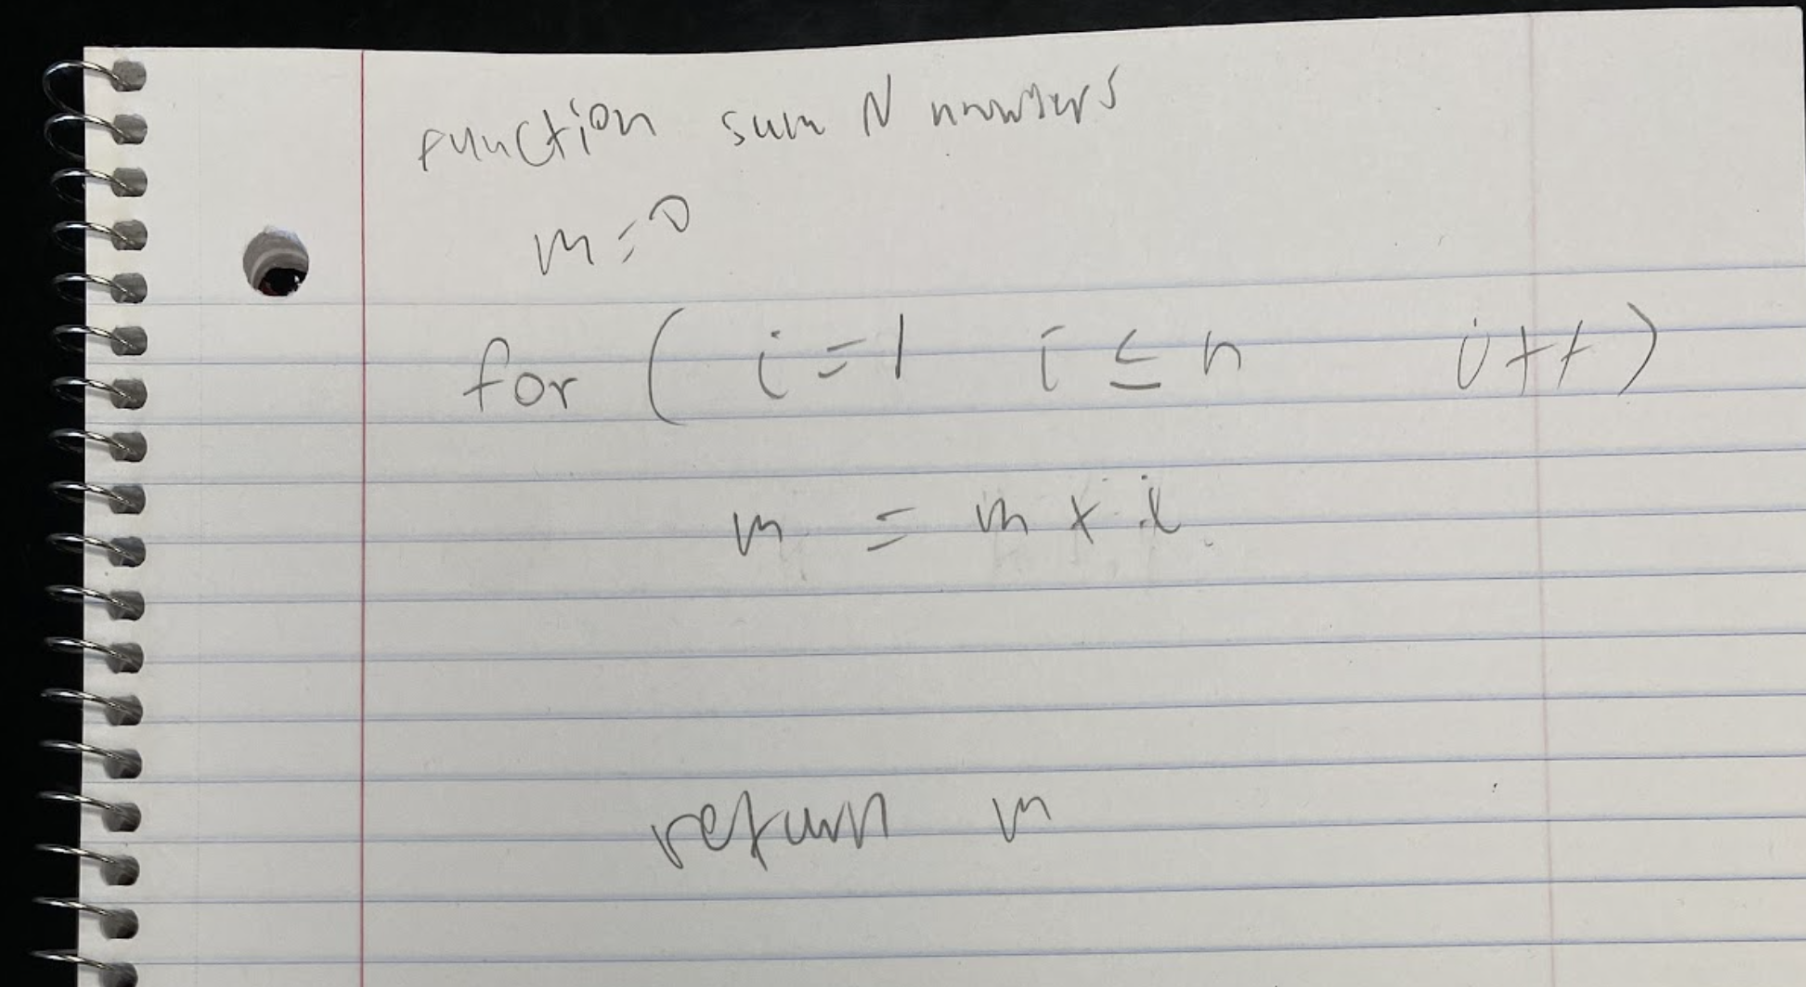 function sum N numbers
m=0
for ( i=1 i ≤ n i++)
m = m + i
return m